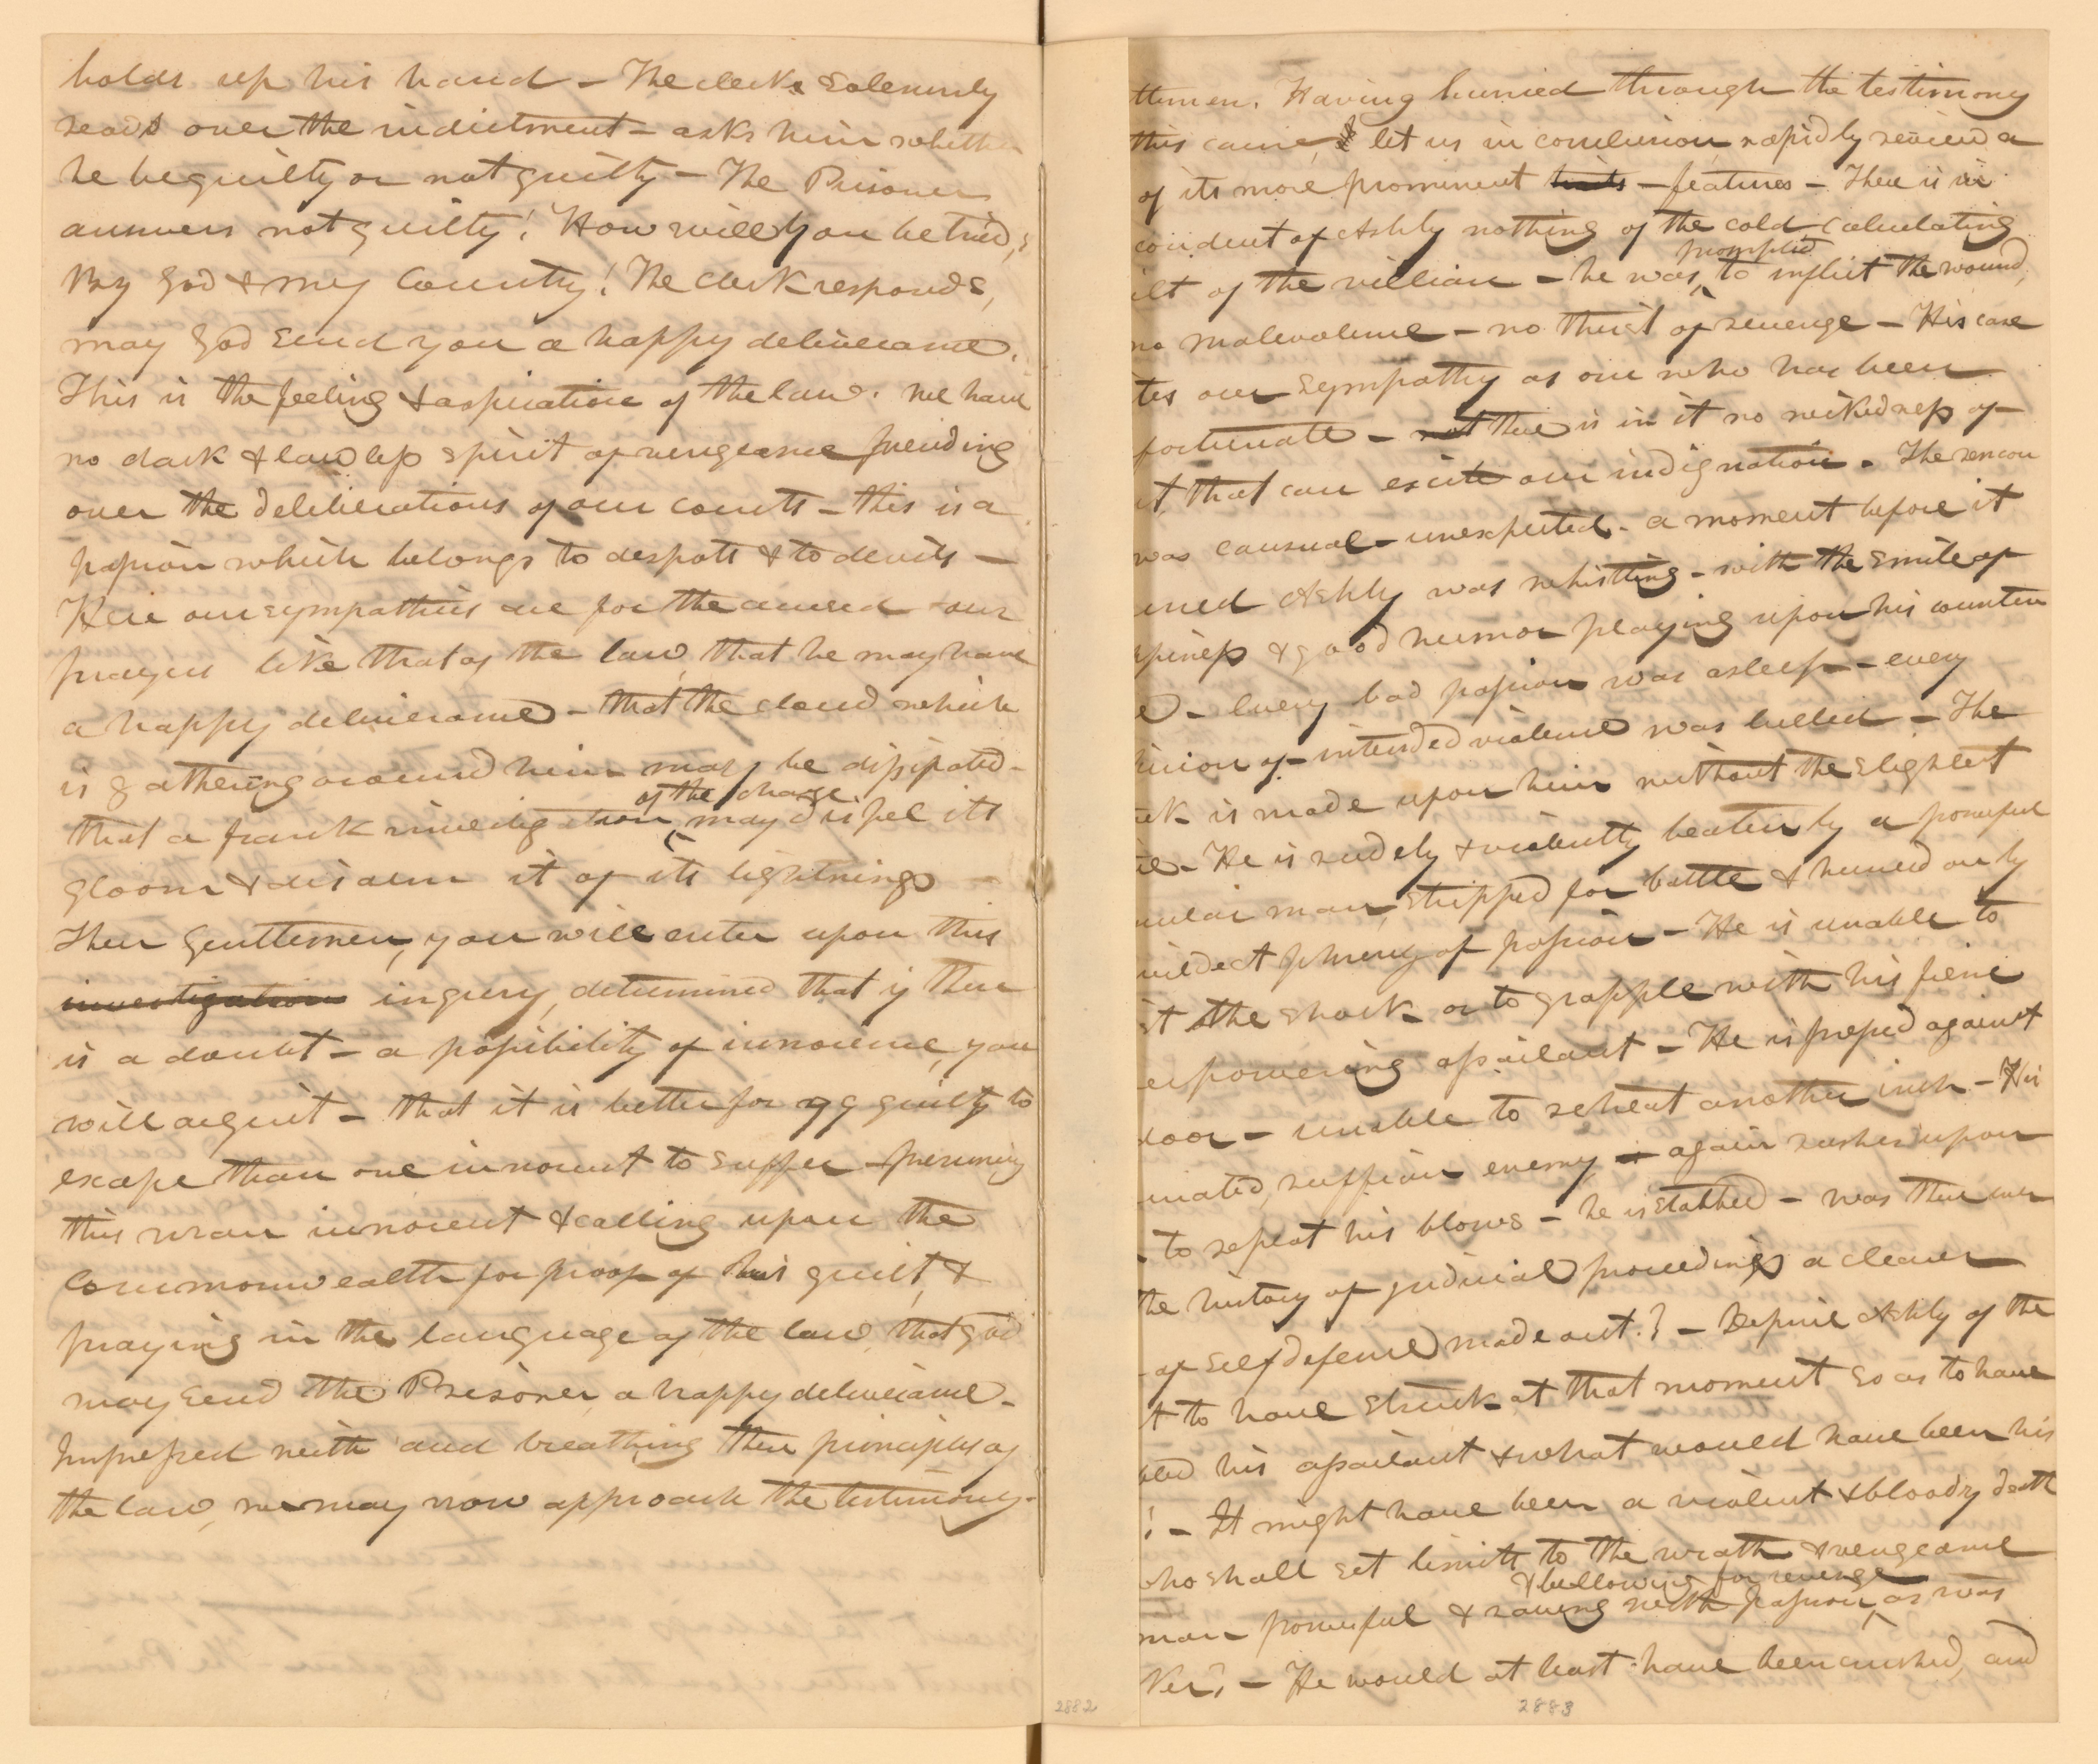 holds up his hand – The clerk solemnly
reads over the indictment – asks him whether
he be guilty or not guilty – The Prisoner
answers not guilty! How will you be tried,
By God & my County! The clerk responds,
may God send you a happy deliverance.
This is the feeling & aspiration of the law. We have
no dark & lawless spirit of vengeance presiding
over the deliberations of our courts – this is a
passion which belongs to despots & to devils –
Here our sympathies are for the accused – our
prayers like that of the law, that he may have
a happy deliverance – that the cloud which
is gathering around him may be dissipated –
of the charge
that a frank investigation may dispel its
gloom & disarm it of its lightnings –
Then Gentlemen, you will enter upon this
investigation inquiry, determined that if there
is a doubt – a possibility of innocence, you
will acquit – that it is better for 99 guilty to
escape than one innocent to suffer – presuming
this man innocent & calling upon the
Commonwealth for proof of his guilt, &
praying in the language of the law, that god
may send the Prisoner a happy deliverance –
Impressed with and breathing these principles of
the law, we may now approach the testimony –
2882
ttemen. Having hurried through the testimony
this cause, let us in conclusion rapidly review a
of its more prominent traits – features – There is in
conduct of Ashby nothing of the cold, calculating
prompted
ilt of the villian – he was to inflict the wound,
no malevolence – no thirst of revenge – His case
tes our sympathy as one who has been
fortunate – not there is in it no wickedness of
it, that can excite our indignation. The rencon
was causual – unexpected – a moment before it
urred Ashby was whistling – with the smile of
ppiness & good humor playing upon his counten
e – Every bad passion was asleep – every
picion of intended violence was lulled – The
ack is made upon him without the slightest
ce – He is rudely & violently beaten by a powerful
uular man, stripped for battle & hurried on by
wildest phrenzy of passion – He is unable to
st the shock or to grapple with his fierce
erpowering assailant – He is proped against
door – unable to retreat another inch – His
inated, ruffian enemy – again rushes upon
to repeat his blows – he is stabbed – was there ever
the history of judicial proceedings a clearer
of self defence made out? – Deprive Ashby of the
t to have struck at that moment so as to have
bled his assailant & what would have been his
! – It might have been a violent & bloody death
who shall set limits to the wrath & vengeance
& bellowing for revenge
man – powerful & raving with passion, as was
Ker? – He would at least have been crushed, and
2883